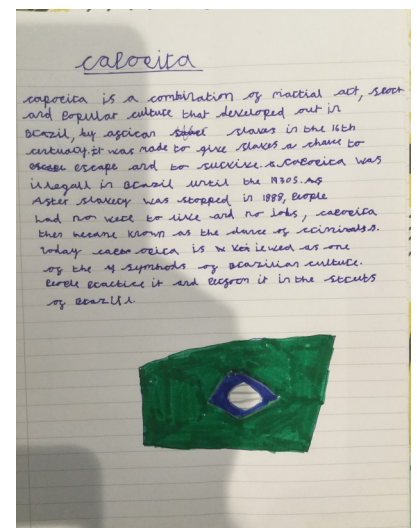 capoeira
capoeira is a combination of martial art, sport
and popular culture that developed out in
Brazil, by african slaves in the 16th
centuary. it was made to give slaves a chance to
escape and to survive. capoeira was
illagall in Brazil until the 1930s.
After slavery was stopped in 1888, people
had no were to live and no jobs, capoeira
then became known as the dance of criminals.
today capoeira is viewed as one
of the symbols of Brazilian culture.
People practice it and perform it in the streets
of Brazil.